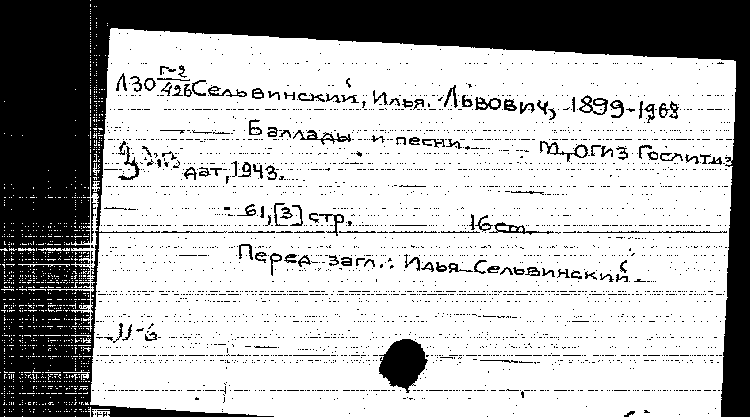 Л30 Г-2/426 Сельвинский, Илья. Львович, 1899-1968
Баллады и песни. М., ОГИЗ Гослитиз
дат, 1943.
61, [3] стр. 16 cm.
Перед загл.: Илья Сельвинский.
Л-6